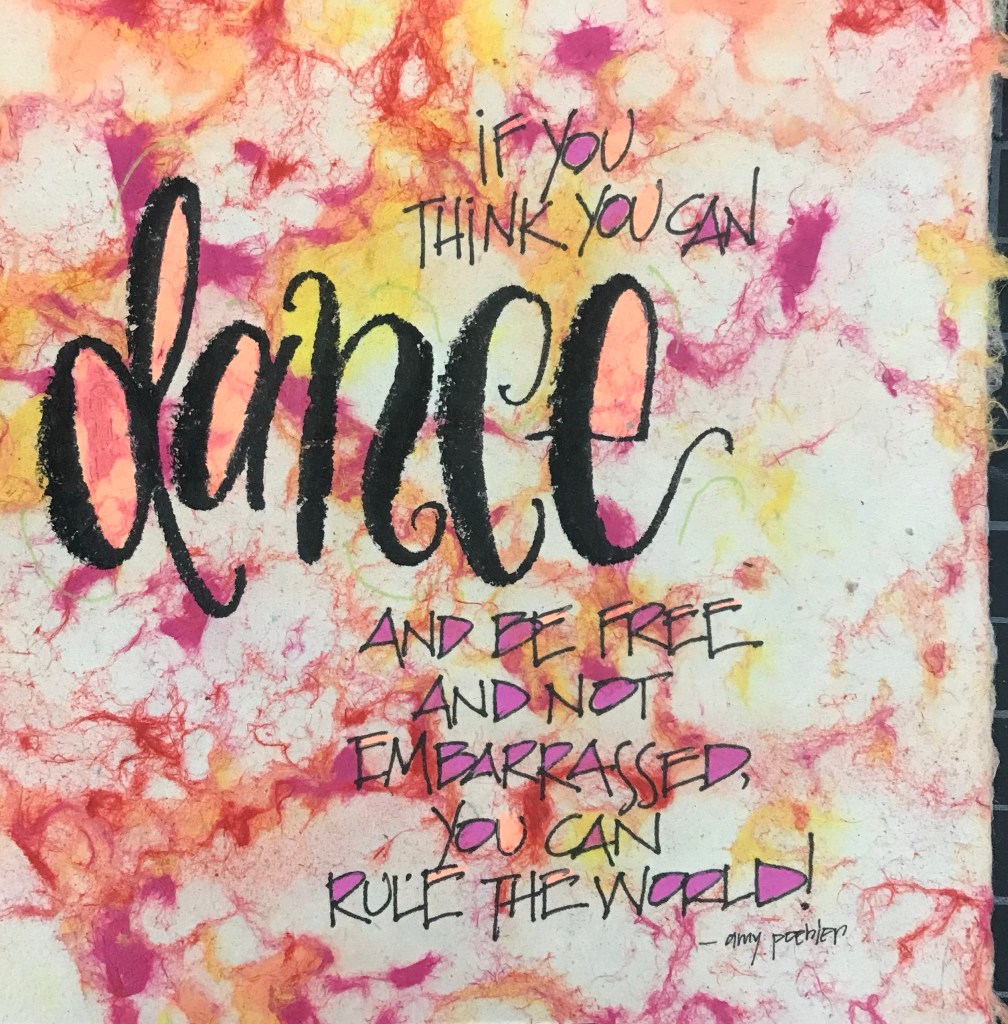 iF YOU
THiNK YOU CAN
dance
AND BE FREE
AND NOT
EMBARRASSED,
YOU CAN
RULE THE WORLD!
- amy poehler